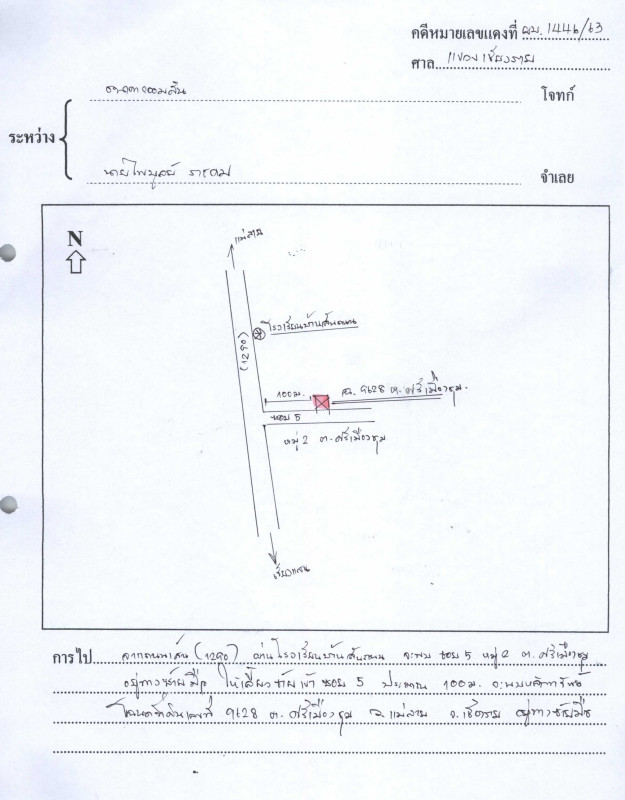 คดีหมายเลขแดงที่ ผบ. 1446/63
ศาล แขวงเชียงราย
ธนาคารออมสิน โจทก์
ระหว่าง
นายไพบูลย์ จำเลย
N
แม่สาย
โรงเรียนบ้านสันถนน
(1290)
100ม.
ฉ. 9628 ต. ศรีเมืองชุม
ซอย 5
หมู่ 2 ต. ศรีเมืองชุม
เชียงแสน
การไป จากถนนเส้น (1290) ผ่านโรงเรียนบ้านสันถนน จะพบ ซอย 5 หมู่ 2 ต. ศรีเมืองชุม
อยู่ทางซ้ายมือ ให้เลี้ยวซ้ายเข้า ซอย 5 ประมาณ 100ม. จะพบหลักทรัพย์
โฉนดที่ดินเลขที่ 9628 ต. ศรีเมืองชุม อ. แม่สาย จ. เชียงราย อยู่ทางซ้ายมือ